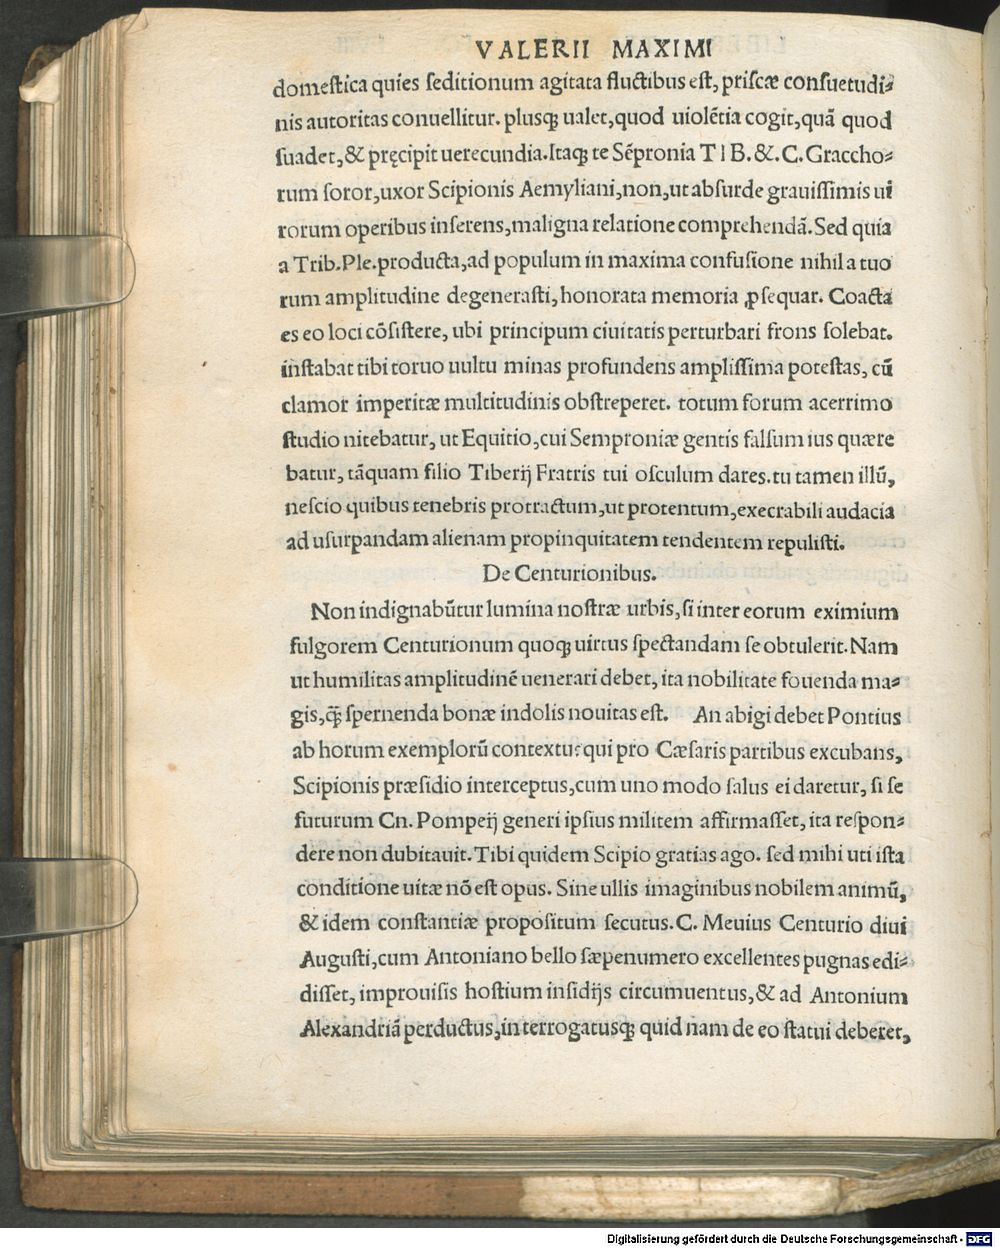 VALERII MAXIMI
domestica quies seditionum agitata fluctibus est, priscæ consuetudi⸗
nis autoritas conuellitur. plusq̃ ualet, quod uiolẽtia cogit, quã quod
suadet, & pręcipit uerecundia. Itaq; te Sẽpronia T I B. &. C. Graccho⸗
rum soror, uxor Scipionis Aemyliani, non, ut absurde grauissimis ui
rorum operibus inserens, maligna relatione comprehendã. Sed quia
a Trib. Ple. producta, ad populum in maxima confusione nihil a tuo
rum amplitudine degenerasti, honorata memoria ꝓsequar. Coacta
es eo loci cõsistere, ubi principum ciuitatis perturbari frons solebat.
instabat tibi toruo uultu minas profundens amplissima potestas, cũ
clamor imperitæ multitudinis obstreperet. totum forum acerrimo
studio nitebatur, ut Equitio, cui Semproniæ gentis falsum ius quære
batur, tãquam filio Tiberij Fratris tui osculum dares. tu tamen illũ,
nescio quibus tenebris protractum, ut protentum, execrabili audacia
ad usurpandam alienam propinquitatem tendentem repulisti.
De Centurionibus.
Non indignabũtur lumina nostræ urbis, si inter eorum eximium
fulgorem Centurionum quoq; uirtus spectandam se obtulerit. Nam
ut humilitas amplitudinẽ uenerari debet, ita nobilitate fouenda ma⸗
gis, q̃ spernenda bonæ indolis nouitas est. An abigi debet Pontius
ab horum exemplorũ contextu: qui pro Cæsaris partibus excubans,
Scipionis præsidio interceptus, cum uno modo salus ei daretur, si se
futurum Cn. Pompeij generi ipsius militem affirmasset, ita respon⸗
dere non dubitauit. Tibi quidem Scipio gratias ago. sed mihi uti ista
conditione uitæ nõ est opus. Sine ullis imaginibus nobilem animũ,
& idem constantiæ propositum secutus. C. Meuius Centurio diui
Augusti, cum Antoniano bello sæpenumero excellentes pugnas edi⸗
disset, improuisis hostium insidijs circumuentus, & ad Antonium
Alexandriã perductus, interrogatusq; quid nam de eo statui deberet,
Digitalisierung gefördert durch die Deutsche Forschungsgemeinschaft - DFG